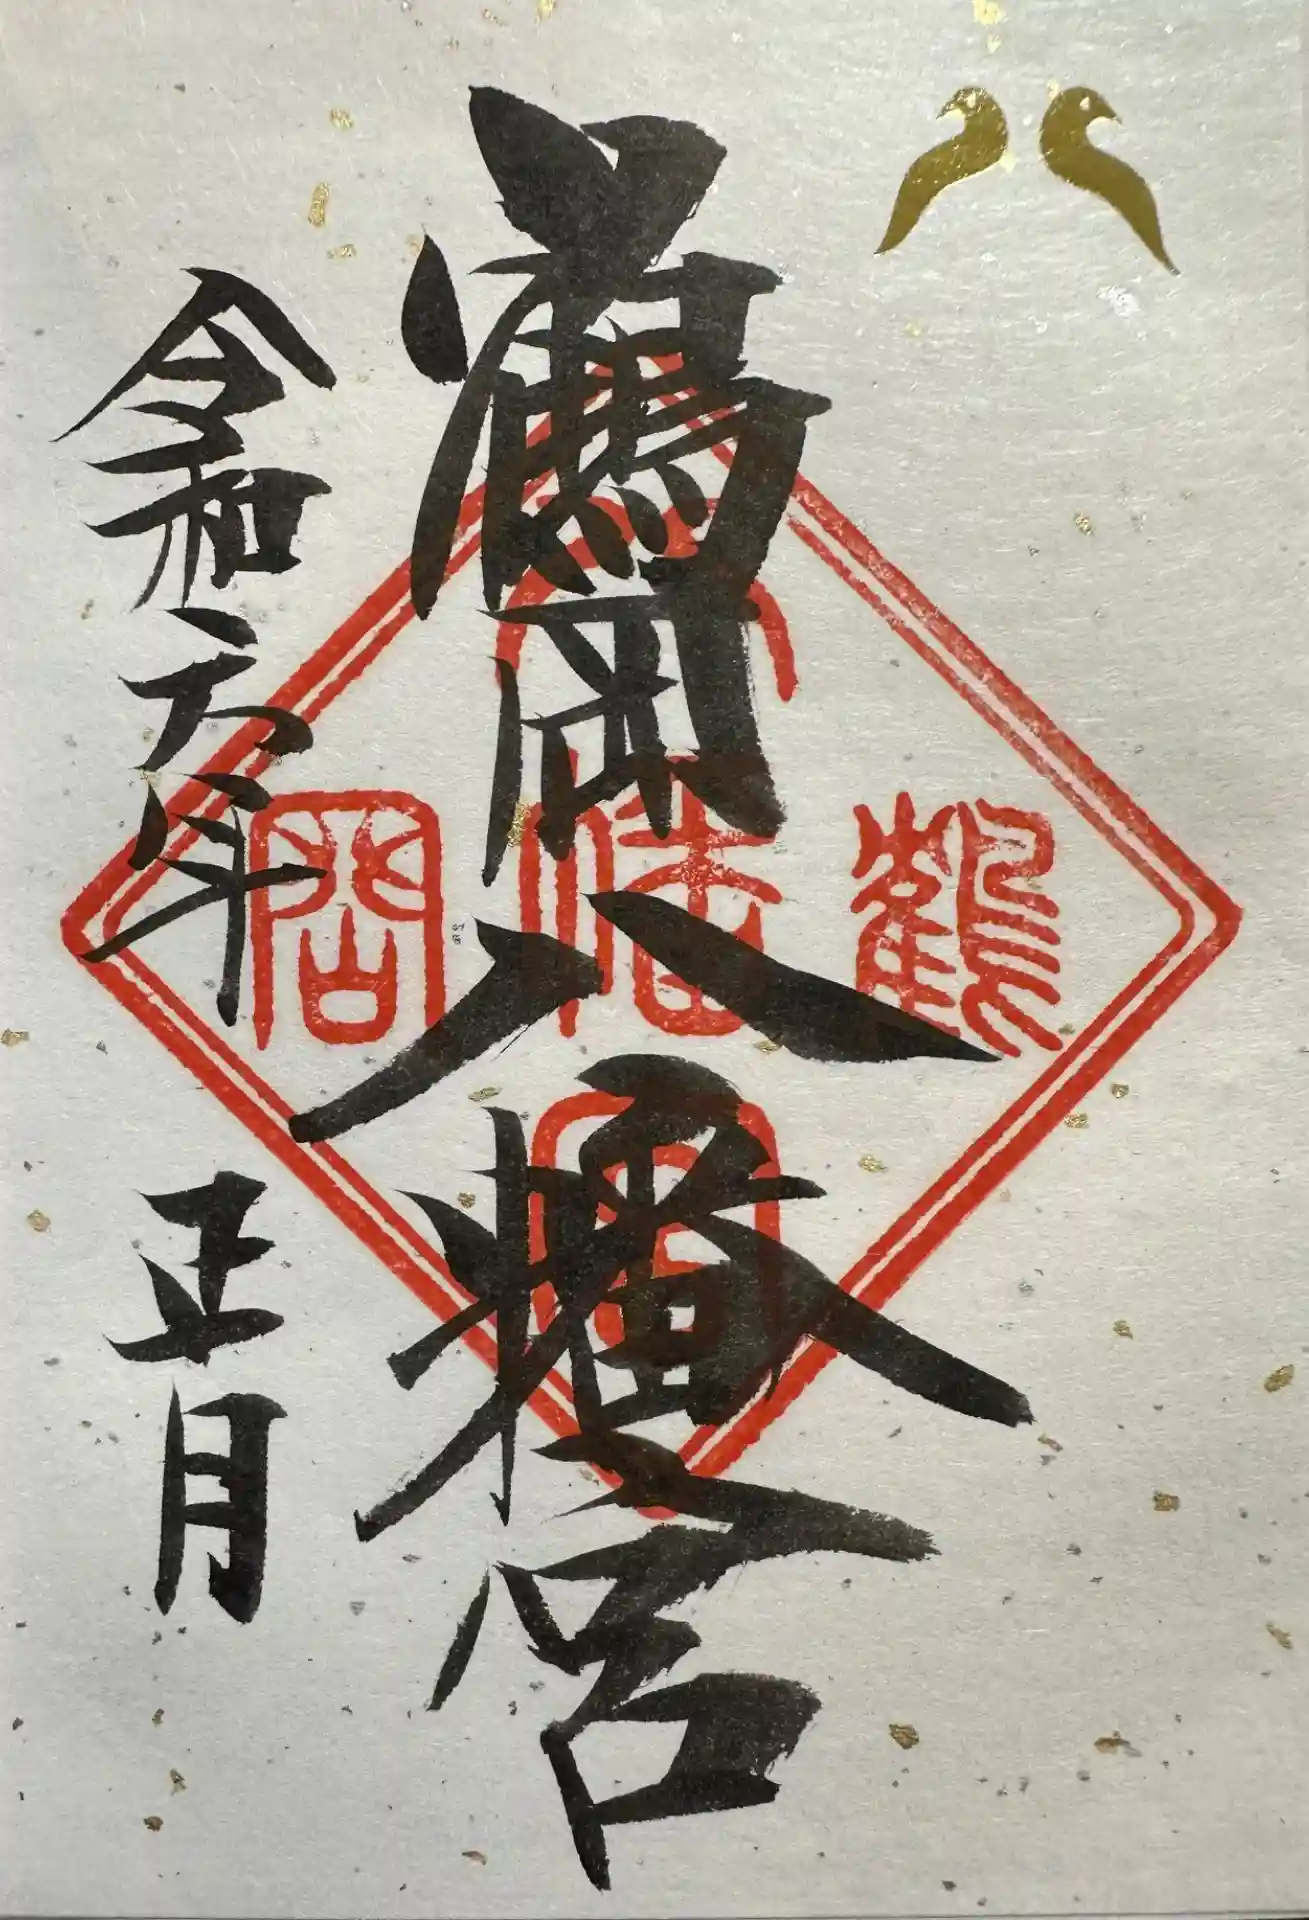 鶴岡八幡宮
令和六年 正月
鶴
八幡宮
岡